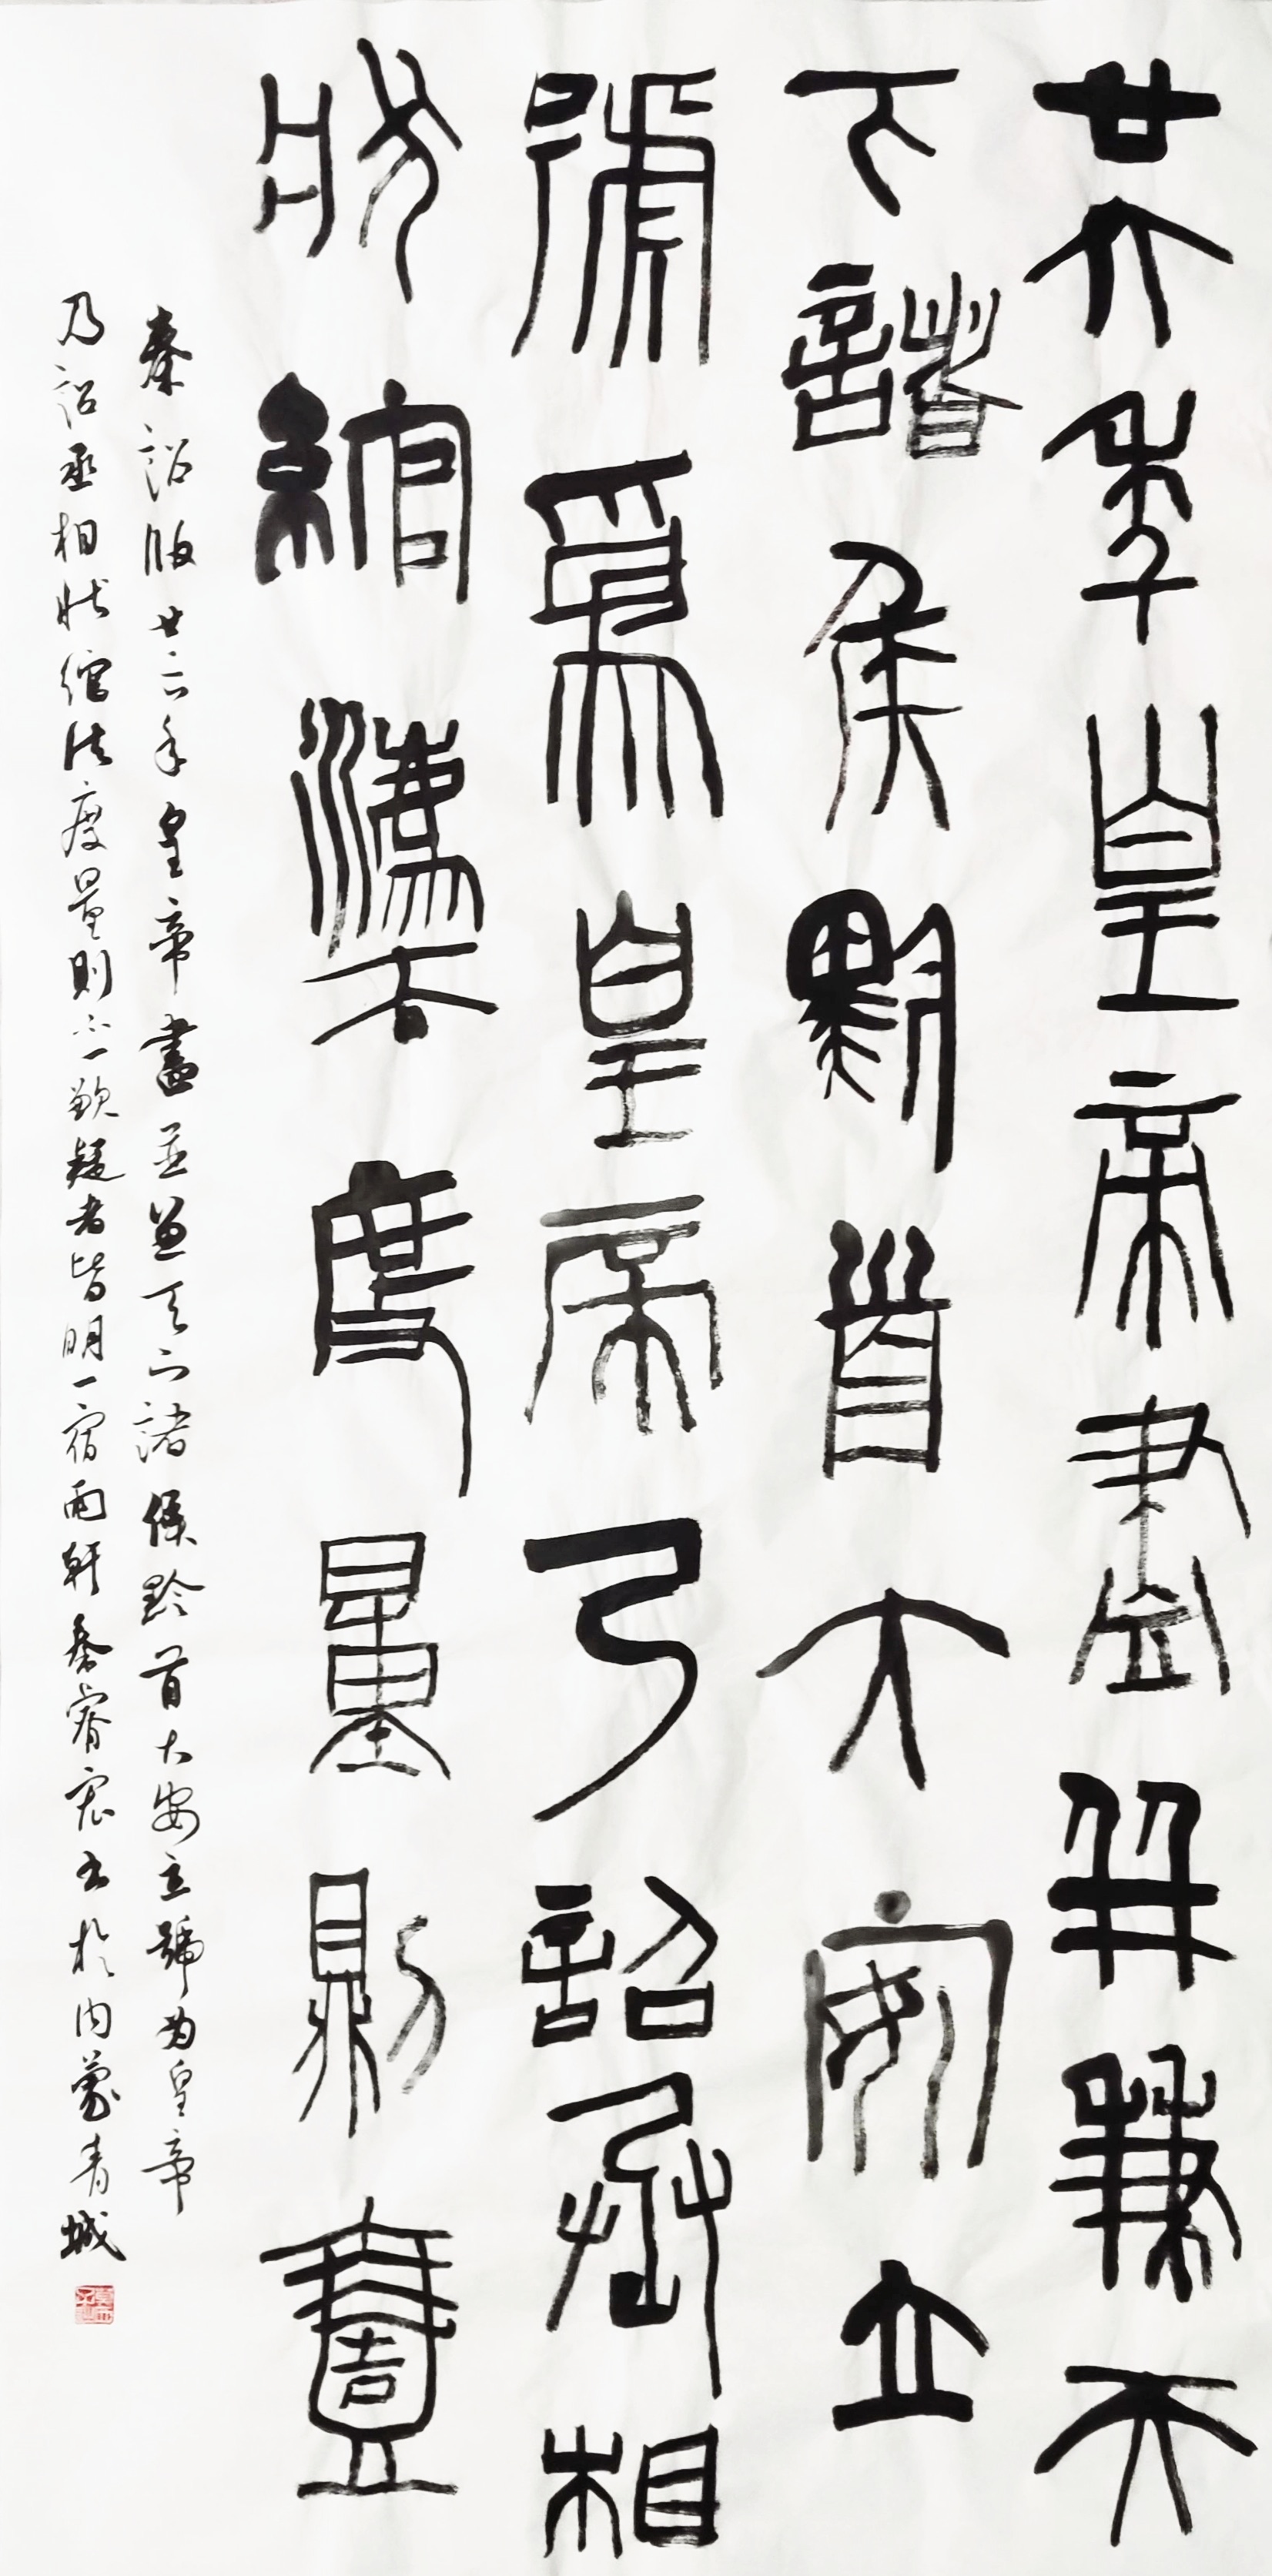 廿六年皇帝盡并兼天
下諸侯黔首大安立
號爲皇帝乃詔丞相
狀綰灋度量則壹
秦詔版廿六年皇帝盡並兼天下諸侯黔首大安立號为皇帝
乃詔丞相状綰法度量則不一歉疑者皆明一宿雨軒秦睿宏书於内蒙青城